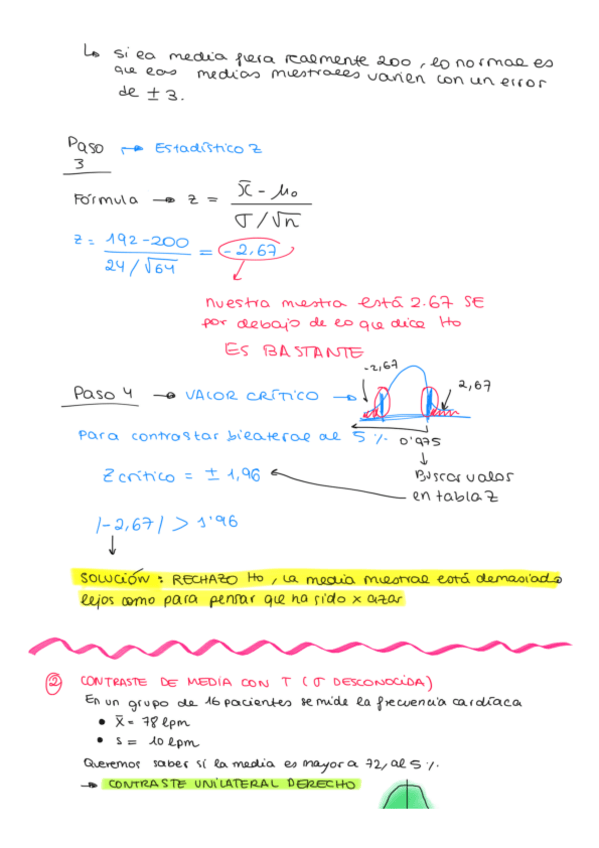 ↳ si la media fuera realmente 200, lo normal es
que las medias muestrales varíen con un error
de ± 3.
Paso 3 → Estadístico Z
Fórmula → z = (x̄ - μ₀) / (σ/√n)
z = (192-200) / (24/√64) = -2,67
nuestra muestra está 2.67 SE
por debajo de lo que dice Ho
ES BASTANTE
Paso 4 → VALOR CRÍTICO →
-2,67
2,67
Para contrastar bilateral al 5 %.
0'975
↓
Buscar valor
en tabla Z
Z crítico = ± 1,96
|-2,67| > 1'96
↓
SOLUCIÓN: RECHAZO Ho, la media muestral está demasiado
lejos como para pensar que ha sido x azar
② CONTRASTE DE MEDIA CON T (σ DESCONOCIDA)
En un grupo de 16 pacientes se mide la frecuencia cardíaca
• x̄ = 78 lpm
• s = 10 lpm
Queremos saber si la media es mayor a 72, al 5 %.
→ CONTRASTE UNILATERAL DERECHO